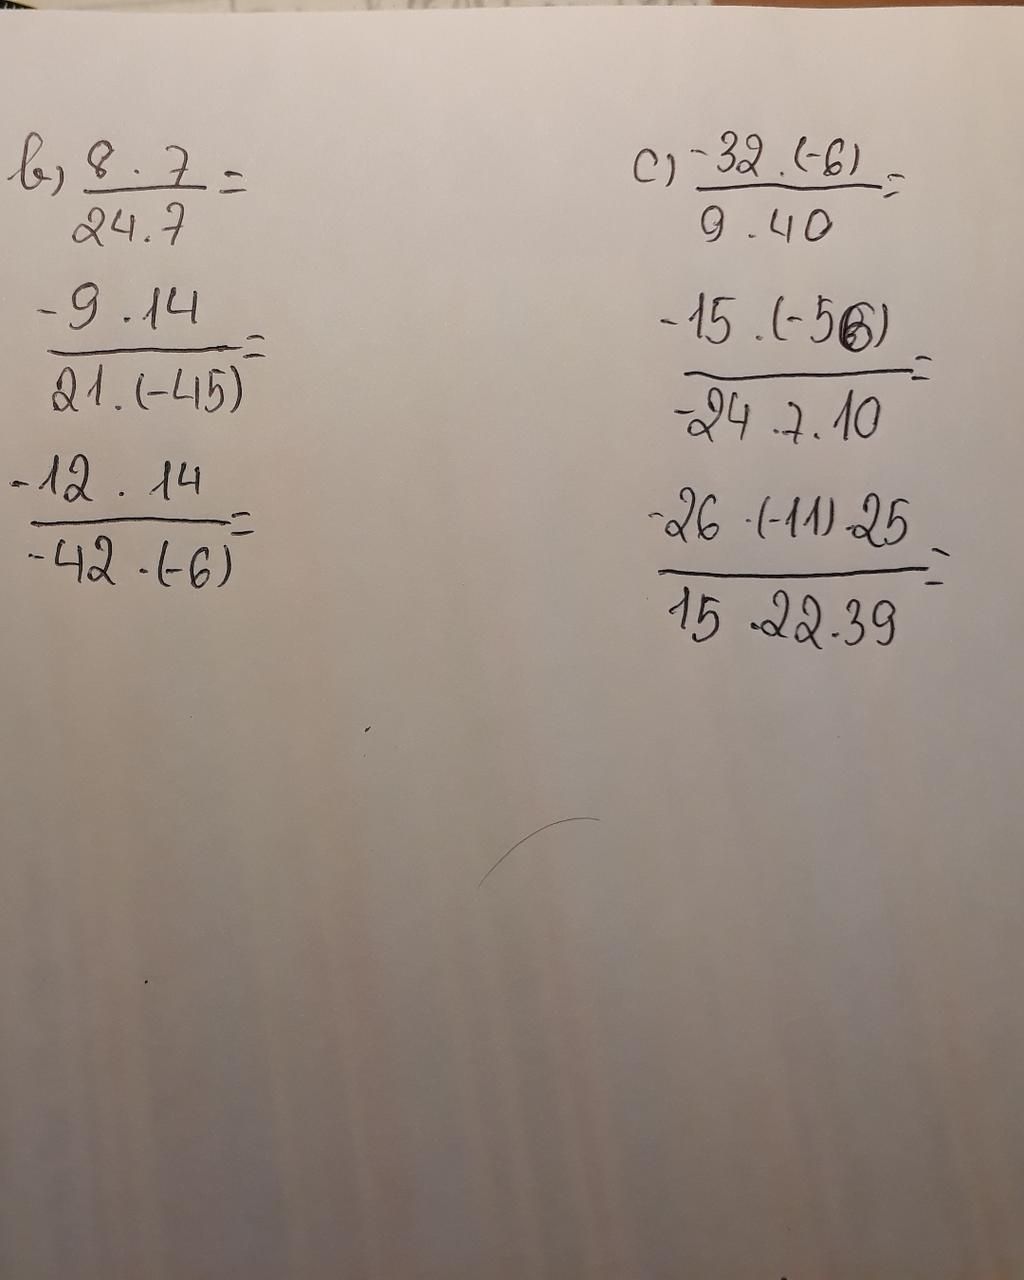 b) 8 . 7 =
24 . 7
-9 . 14 =
21 . (-45)
-12 . 14 =
-42 . (-6)
c) -32 . (-6) =
9 . 40
-15 . (-56) =
-24 . 7 . 10
-26 . (-11) . 25 =
15 . 22 . 39